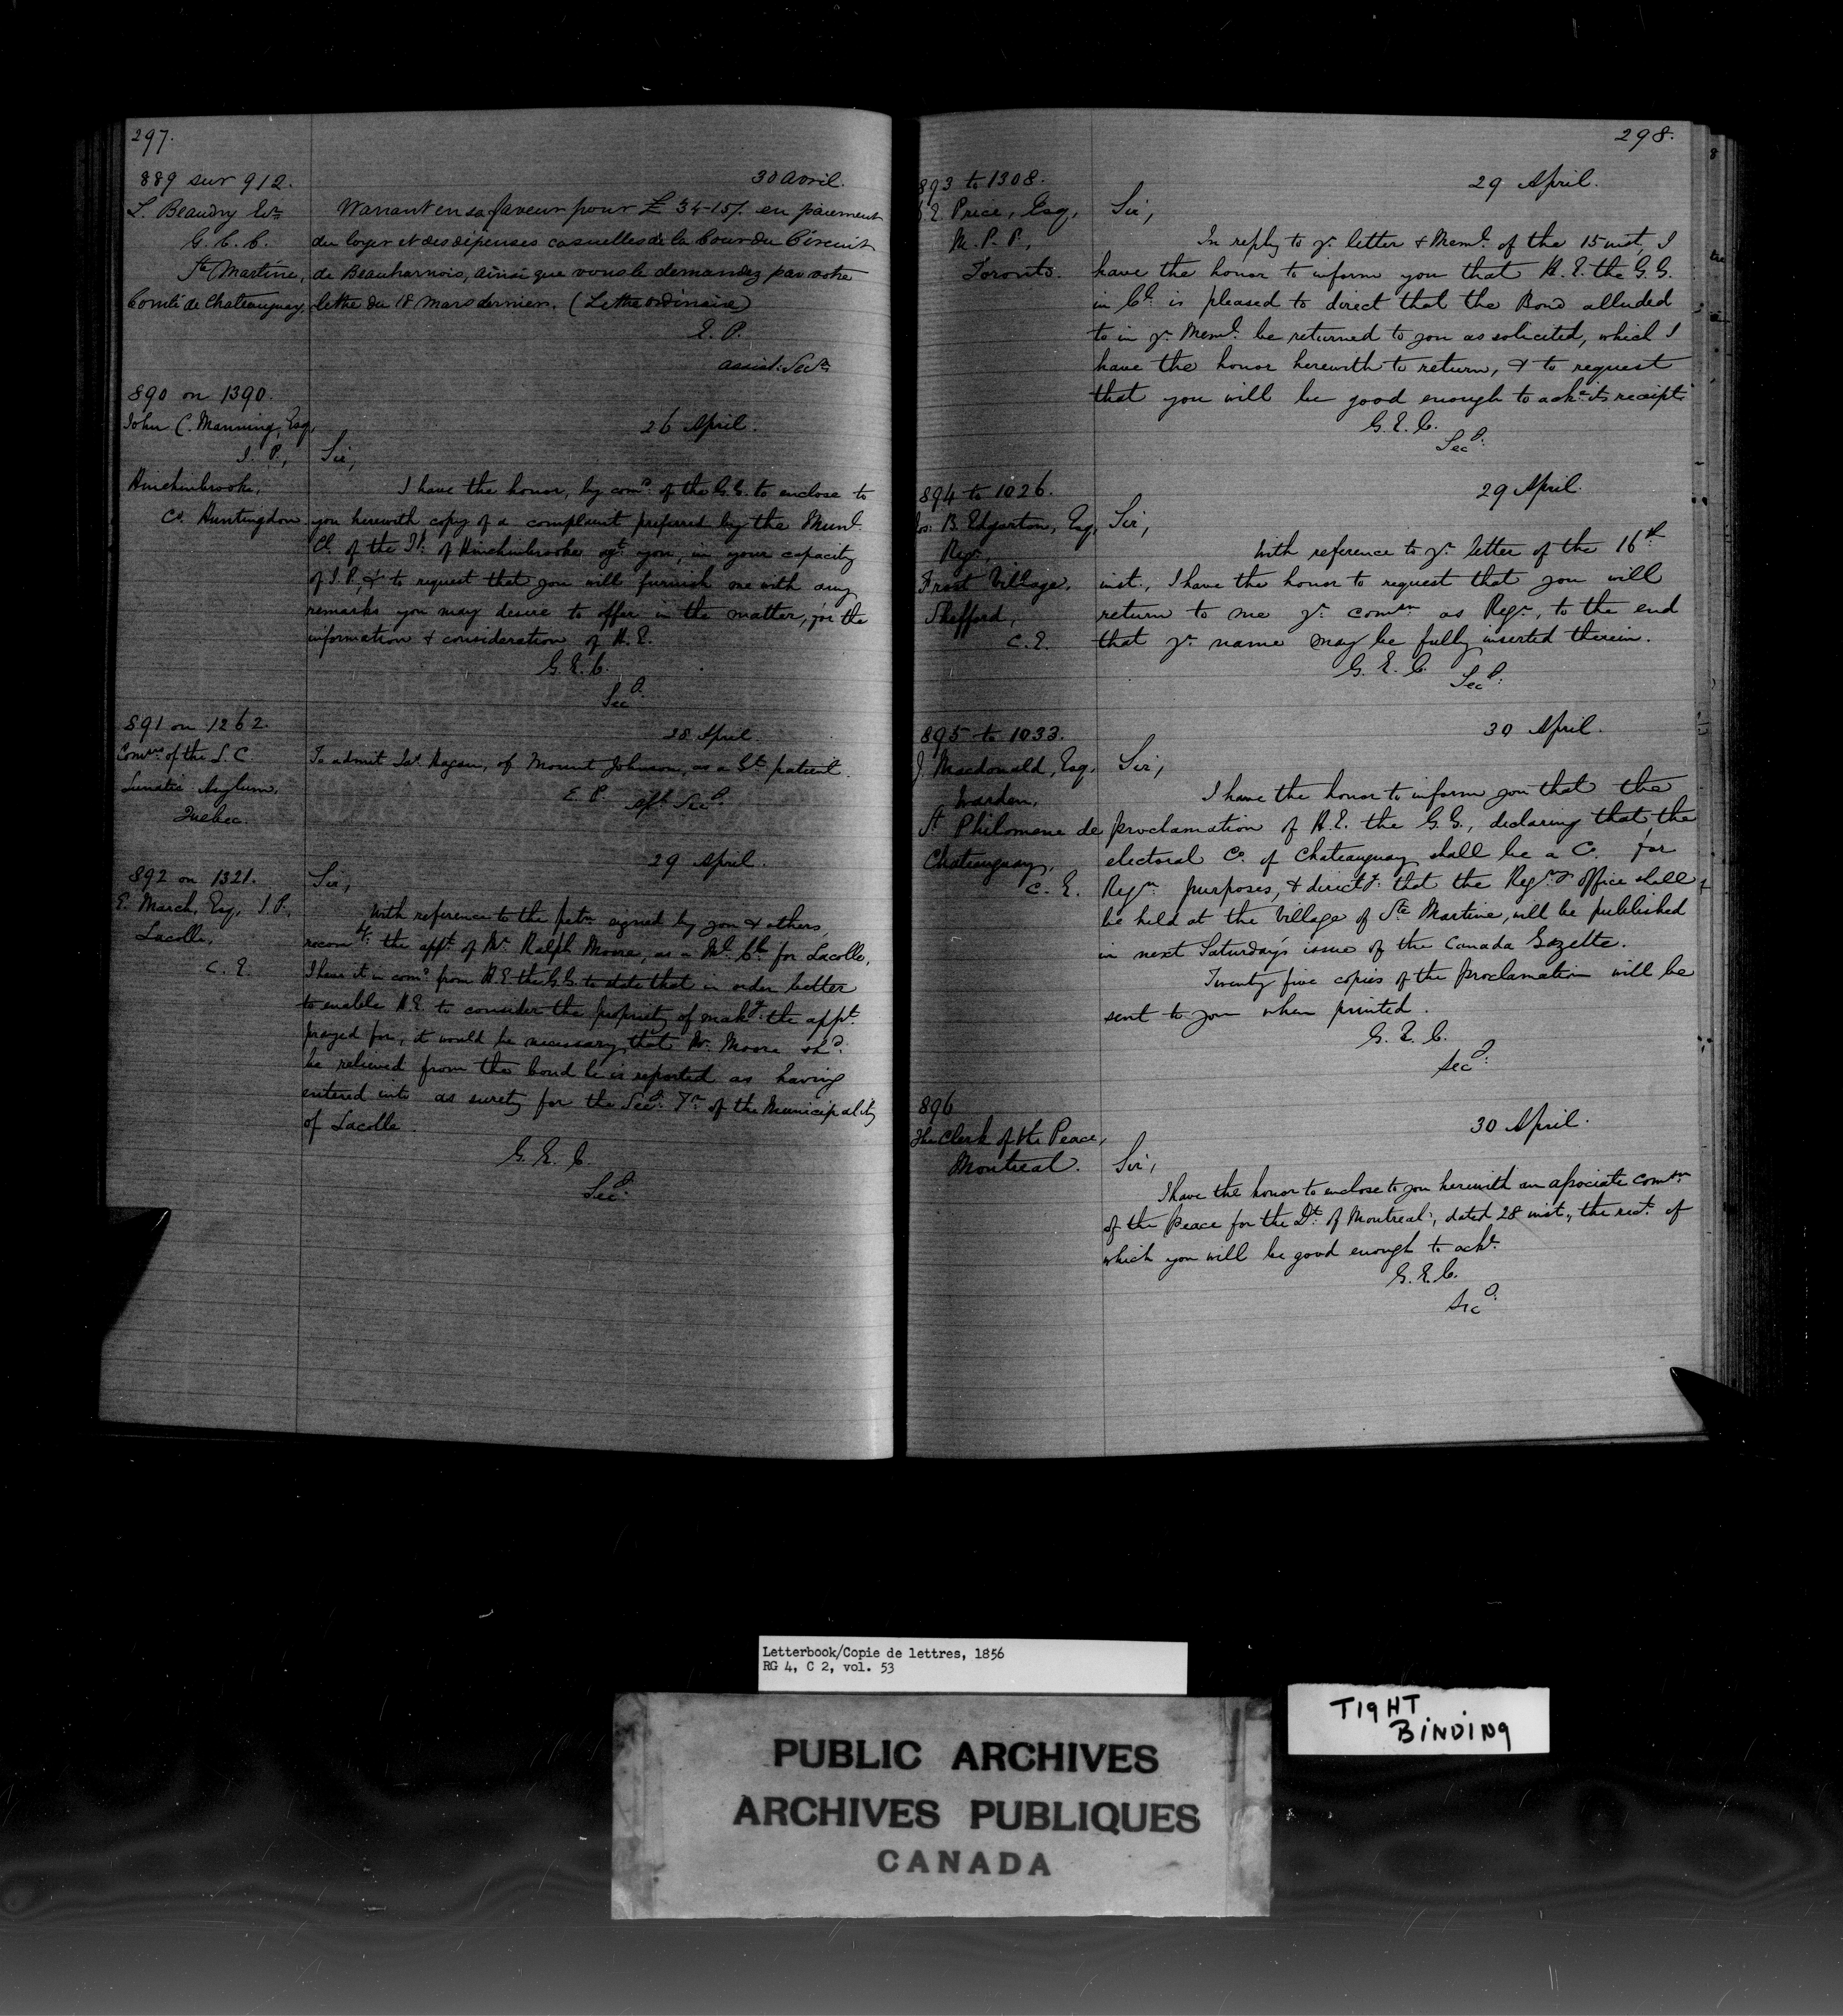 297.
889 sur 912.
30 avril.
L. Beaudry Ecr
G. C. C.
Ste Martine,
Comté de Chateauguay,
Warrant en sa faveur pour £ 34-15/. en paiement
du loyer et des dépenses casuelles de la Cour du Circuit
de Beauharnois, ainsi que vous le demandez par votre
lettre du 18 Mars dernier. (Lettre ordinaire)
E. P.
assist: Secr
890 on 1390.
John C. Manning, Esq,
J. P.,
Hinchinbrooke,
Co. Huntingdon
26 April.
Sir,
I have the honor, by comd: of the G.G. to enclose to
you herewith copy of a complaint preferred by the Munl.
Cl. of the Tp: of Hinchinbrooke agt. you, in your capacity
of J. P., & to request that you will furnish me with any
remarks you may desire to offer in the matter, for the
information & consideration of H. E.
G. E. C.
Secy:
891 on 1262.
Comrs: of the L. C.
Lunatic Asylum,
Quebec.
28 April.
To admit Jas. Hagan, of Mount Johnson, as a Gt. patient.
E. P. Asst. Secy:
892 on 1321.
E. March, Esq, J. P.,
Lacolle,
C. E.
29 April.
Sir,
With reference to the petn signed by you & others,
recomg: the appt. of Mr. Ralph Moore, as a Ml. Cr. for Lacolle,
I have it in comd. from H. E. the G.G. to state that in order better
to enable H. E. to consider the propriety of makg: the appt.
prayed for, it would be necessary that Mr. Moore shd:
be relieved from the bond he is reported as having
entered into as surety for the Secy: Tr. of the Municipality
of Lacolle.
G. E. C.
Secy:
298.
893 to 1308.
E. Price, Esq,
M. P. P.,
Toronto.
29 April.
Sir,
In reply to yr. letter & Meml. of the 15 inst, I
have the honor to inform you that H. E. the G. G.
in Cl. is pleased to direct that the Bond alluded
to in yr. Meml. be returned to you as solicited, which I
have the honor herewith to return, & to request
that you will be good enough to acke. its receipt.
G. E. C.
Secy:
894 to 1026.
Jos: B. Edgarton, Esq,
Regr.,
Frost Village,
Shefford,
C. E.
29 April.
Sir,
With reference to yr. letter of the 16th
inst., I have the honor to request that you will
return to me yr. comsn as Regr., to the end
that yr. name may be fully inserted therein.
G. E. C.
Secy:
895 to 1033.
J. Macdonald, Esq,
Warden,
St Philomene de
Chateauguay,
C. E.
30 April.
Sir,
I have the honor to inform you that the
proclamation of H. E. the G. G., declaring that the
electoral Co. of Chateauguay shall be a Co. for
Regn. purposes, & directg: that the Regr.s office shall
be held at the Village of Ste Martine, will be published
in next Saturday's issue of the Canada Gazette.
Twenty five copies of the proclamation will be
sent to you when printed.
G. E. C.
Secy:
896
The Clerk of the Peace,
Montreal.
30 April.
Sir,
I have the honor to enclose to you herewith an associate comsn.
of the Peace for the Dt. of Montreal, dated 28 inst., the rect. of
which you will be good enough to acke.
G. E. C.
Secy:
Letterbook/Copie de lettres, 1856
RG 4, C 2, vol. 53
TIGHT
BINDING
PUBLIC ARCHIVES
ARCHIVES PUBLIQUES
CANADA